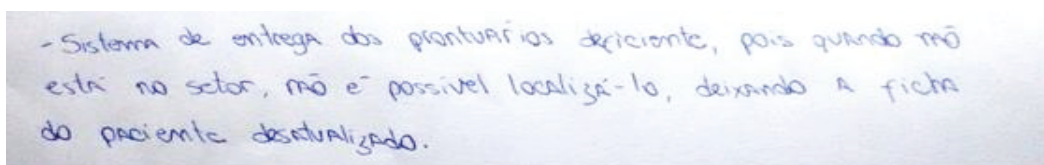 - Sistema de entrega dos prontuários deficiente, pois quando nõ
está no setor, nõ é possível localizá-lo, deixando a ficha
do paciente desatualizado.